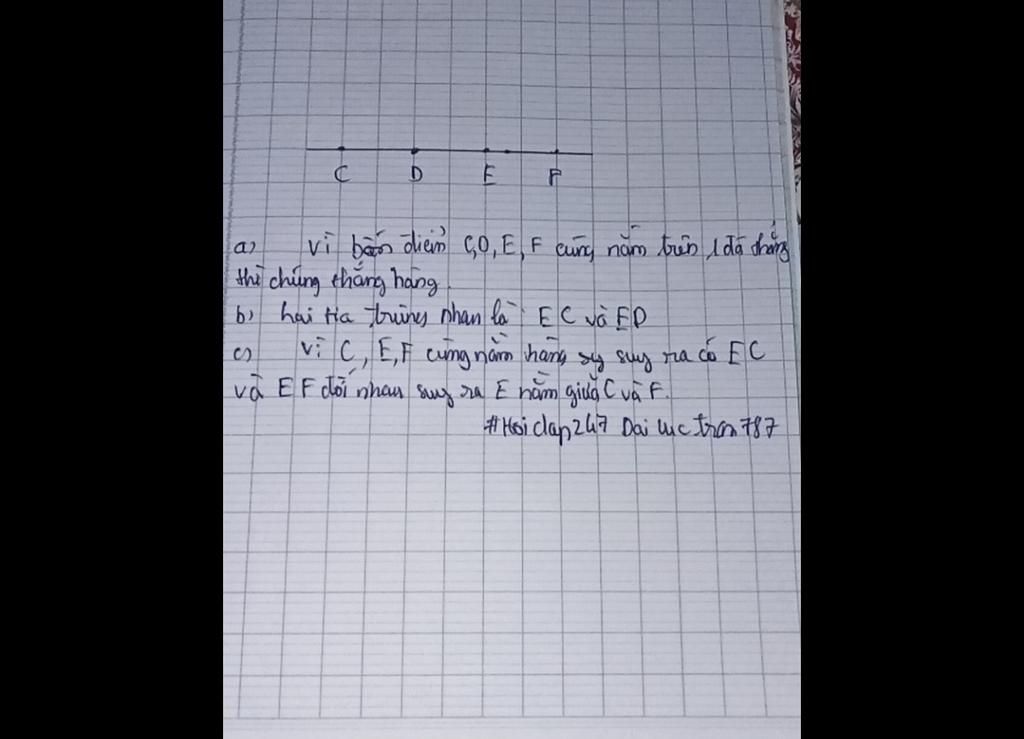 C D E F
a) Vì bốn điểm C, D, E, F cùng nằm trên 1 đg thẳng
thì chúng thẳng hàng.
b) hai tia trùng nhau là: EC và ED
c) Vì C, E, F cùng nằm hàng suy ra có EC
và EF đối nhau suy ra E nằm giữa C và F.
#Hoidap247 Dai luc tran787